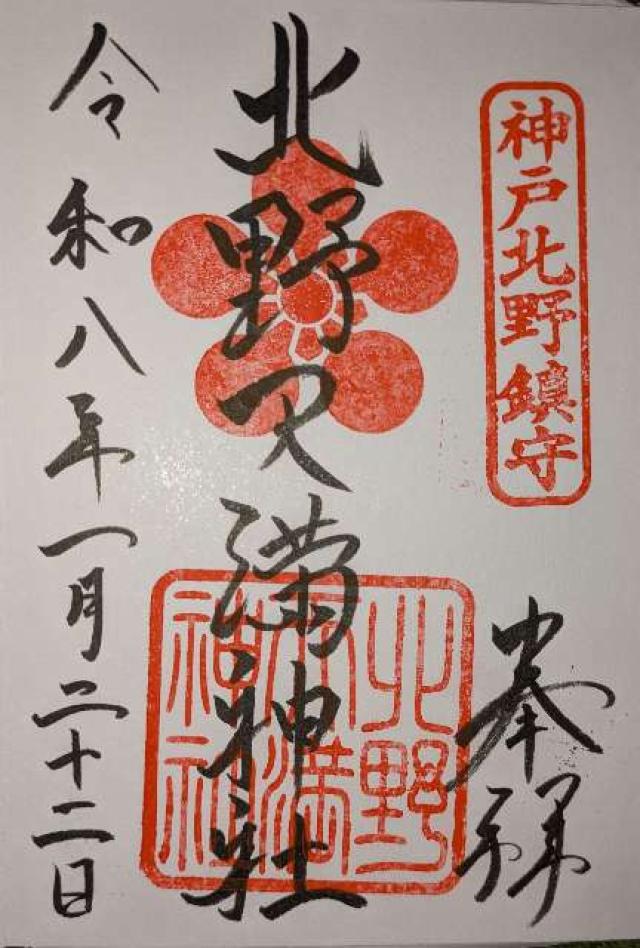 神戸北野鎮守
奉拝
北野天満神社
北野
天満
神社
令和八年一月二十二日